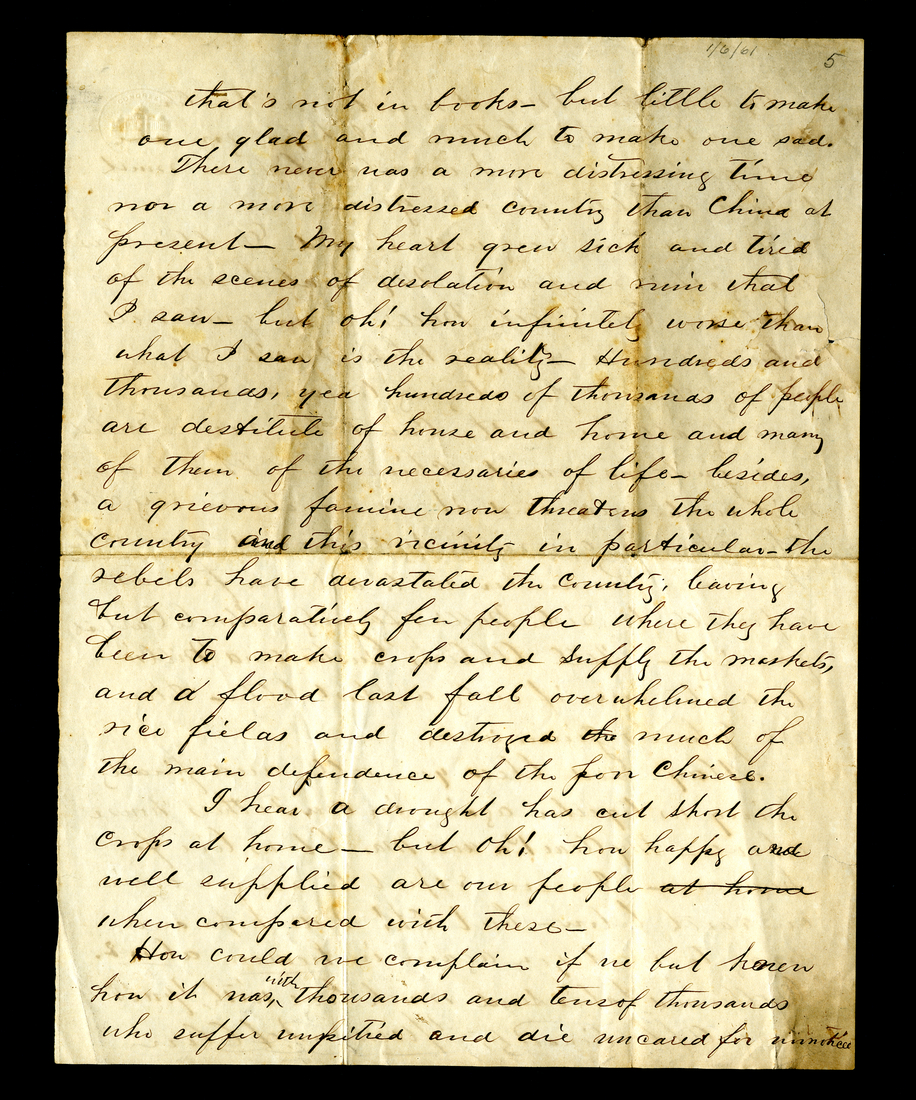 1/6/61
5
that's not in books- but little to make
one glad and much to make one sad.
There never was a more distressing time
nor a more distressed country than China at
present- My heart grew sick and tired
of the scenes of desolation and ruin that
I saw- but oh! how infinitely worse than
what I saw is the reality- Hundreds and
thousands, yea hundreds of thousands of people
are destitute of house and home and many
of them of the necessaries of life- besides,
a grievous famine now threatens the whole
country and this vicinity in particular-the
rebels have devastated the country, leaving
but comparatively few people where they have
been to make crops and supply the markets,
and a flood last fall overwhelmed the
rice fields and destroyed the much of
the main defendence of the poor Chinese.
I hear a drought has cut short the
crops at home- but Oh! how happy and
well supplied are our people at home
when compared with these-
How could we complain if we but knew
how it was with thousands and tens of thousands
who suffer unpitied and die uncared for